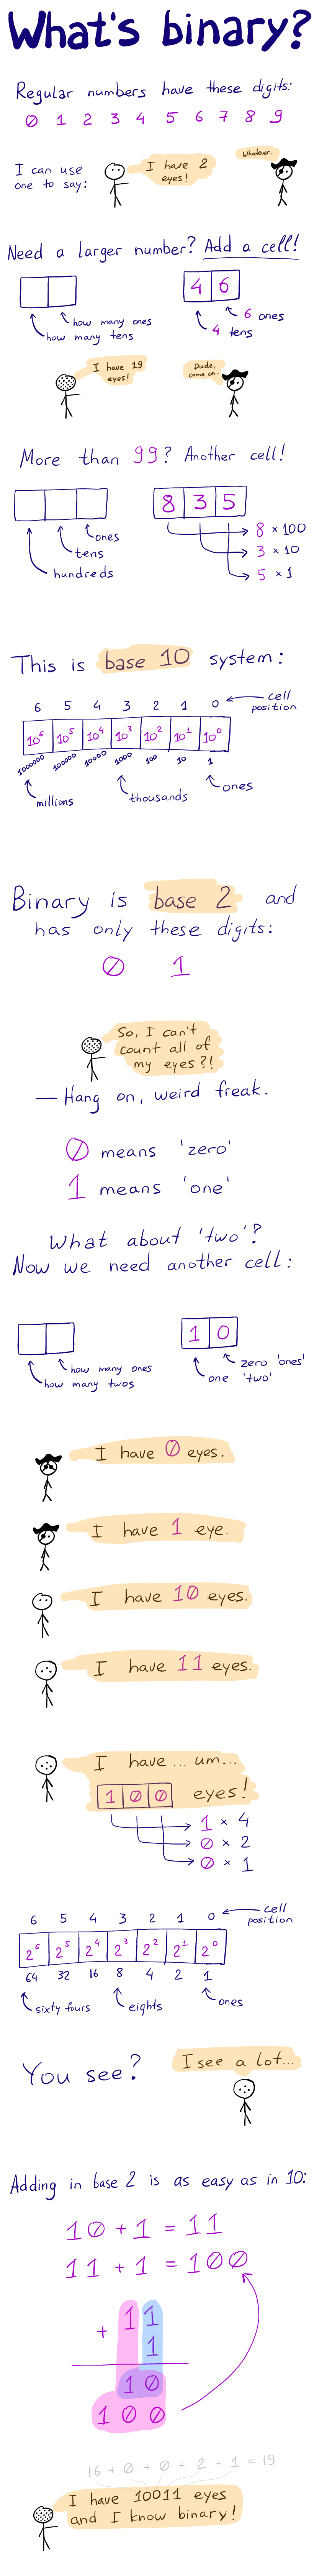 What's binary?
Regular numbers have these digits:
0 1 2 3 4 5 6 7 8 9
I can use
one to say:
I have 2
eyes!
Whatever...
Need a larger number? Add a cell!
how many ones
how many tens
4 6
6 ones
4 tens
I have 19
eyes!
Dude,
come on...
More than 99? Another cell!
ones
tens
hundreds
8 3 5
8 × 100
3 × 10
5 × 1
This is base 10 system:
6 5 4 3 2 1 0
cell
position
10⁶ 10⁵ 10⁴ 10³ 10² 10¹ 10⁰
1000000 100000 10000 1000 100 10 1
millions
thousands
ones
Binary is base 2 and
has only these digits:
0 1
So, I can't
count all of
my eyes?!
— Hang on, weird freak.
0 means 'zero'
1 means 'one'
What about 'two'?
Now we need another cell:
how many ones
how many twos
1 0
zero 'ones'
one 'two'
I have 0 eyes.
I have 1 eye.
I have 10 eyes.
I have 11 eyes.
I have ... um...
1 0 0 eyes!
1 × 4
0 × 2
0 × 1
6 5 4 3 2 1 0
cell
position
2⁶ 2⁵ 2⁴ 2³ 2² 2¹ 2⁰
64 32 16 8 4 2 1
sixty fours
eights
ones
You see?
I see a lot...
Adding in base 2 is as easy as in 10:
10 + 1 = 11
11 + 1 = 100
+ 11
1
10
100
16 + 0 + 0 + 2 + 1 = 19
I have 10011 eyes
and I know binary!